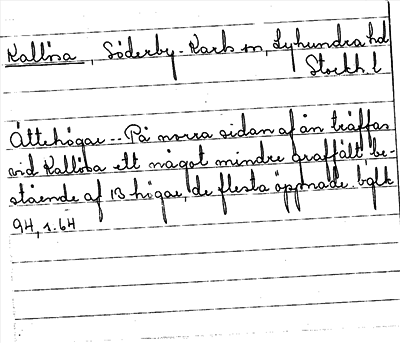 Kallösa, Söderby-Karls sn, Lyhundra hd
Stockh. l
Ättehögar -- På norra sidan af ån träffas
vid Kallösa ett något mindre graffält be-
stående af 13 högar, de flesta öppnade.
94, 1.64